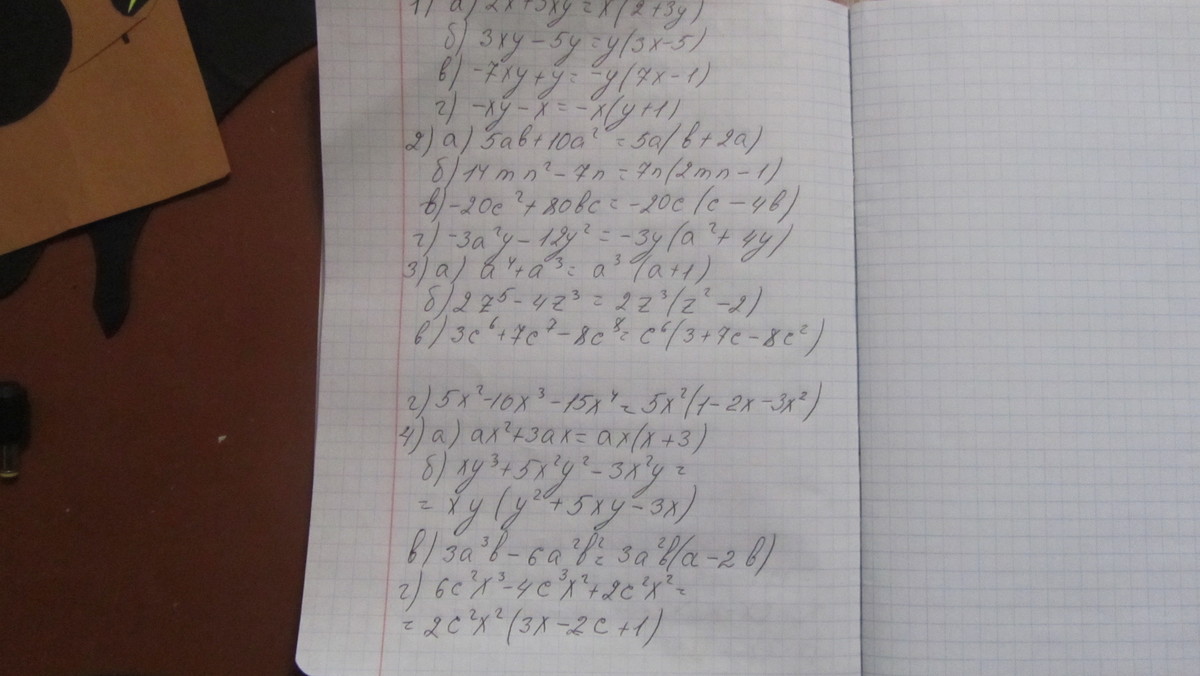 1) а) 2x+3xy=x(2+3y)
б) 3xy-5y=y(3x-5)
в) -7xy+y=-y(7x-1)
г) -xy-x=-x(y+1)
2) а) 5ab+10a²=5a(b+2a)
б) 14mn²-7n=7n(2mn-1)
в) -20c²+80bc=-20c(c-4b)
г) -3a²y-12y²=-3y(a²+4y)
3) а) a⁴+a³=a³(a+1)
б) 2z⁵-4z³=2z³(z²-2)
в) 3c⁶+7c⁷-8c⁸=c⁶(3+7c-8c²)
г) 5x²-10x³-15x⁴=5x²(1-2x-3x²)
4) а) ax²+3ax=ax(x+3)
б) xy³+5x²y²-3x²y=
=xy(y²+5xy-3x)
в) 3a³b-6a²b²=3a²b(a-2b)
г) 6c²x³-4c³x²+2c²x²=
=2c²x²(3x-2c+1)